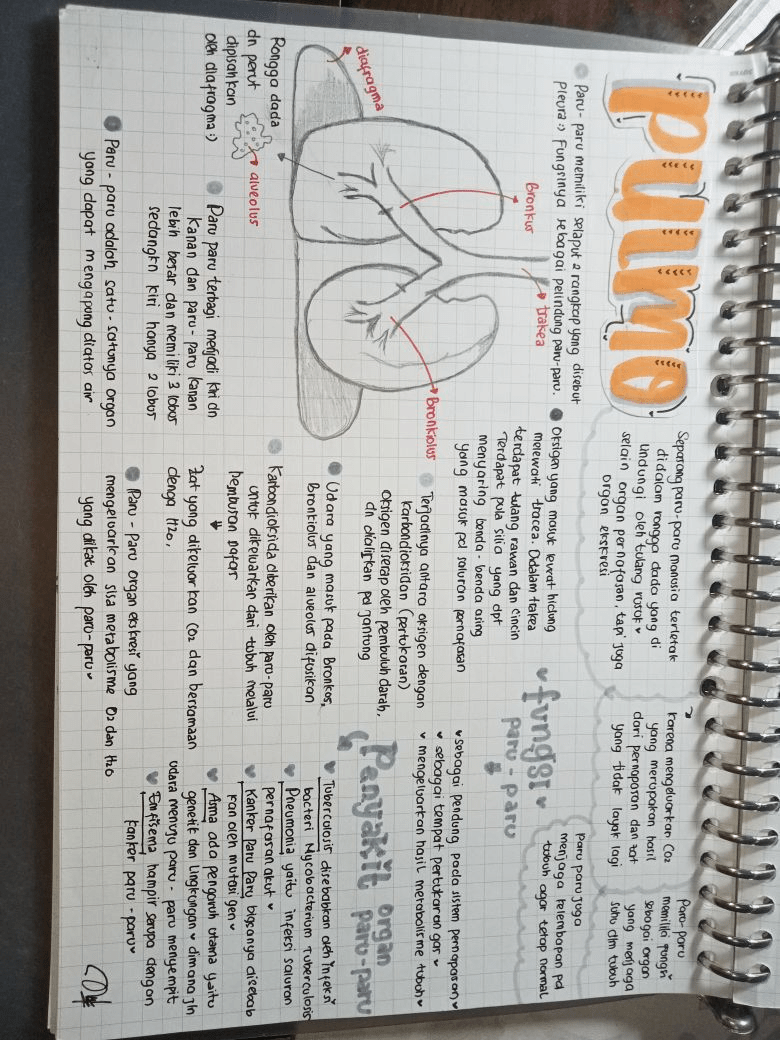 pulmo
Separang paru-paru manusia terletak
didalam rongga dada yang di
lindungi oleh tulang rusuk
selain organ pernafasan, tapi juga
organ ekskresi
Karena mengeluarkan CO2
yang merupakan hasil
dari pernapasan dan zat
yang tidak layak lagi
Paru-paru
memiliki fungsi
sebagai organ
yang menjaga
suhu dlm tubuh
Paru-paru memiliki selaput 2 rangkap yang disebut
Pleura :) Fungsinya sebagai pelindung paru-paru.
Bronkus
trakea
Bronkiolus
diafragma
alveolus
Rongga dada
dn perut
dipisahkan
oleh diafragma :)
Paru paru terbagi menjadi kiri dn
kanan dan paru-paru kanan
lebih besar dan memiliki 3 lobus
sedangkn kiri hanya 2 lobus
Paru-paru adalah satu-satunya organ
yang dapat mengapung diatas air
Oksigen yang masuk lewat hidung
melewati tracea. Didalam trakea
terdapat tulang rawan dan cincin
Terdapat pula silia yang dpt
menyaring benda-benda asing
yang masuk pd saluran pernafasan
Terjadinya antara oksigen dengan
karbondioksidan (pertukaran)
oksigen diserap oleh pembuluh darah,
dn dialirkan pd jantung
Udara yang masuk pada Bronkos,
Bronkiolus dan alveolus difusikan
Karbondioksida diberikan oleh paru-paru
untuk dikeluarkan dari tubuh melalui
hembusan nafas
Zat yang dikeluarkan CO2 dan bersamaan
denga H2O,
Paru-Paru organ ekskresi yang
mengeluarkan sisa metabolisme O2 dan H2O
yang diikat oleh paru-paru
fungsi
paru-paru
Paru paru juga
menjaga kelembapan pd
tubuh agar tetap normal
sebagai pendung pada sistem pernapasan
sebagai tempat pertukaran gas
mengeluarkan hasil metabolisme tubuh
Penyakit organ
paru-paru
Tuberculosis disebabkan oleh infeksi
bacteri Mycobacterium Tuberculosis
Pneumonia yaitu infeksi saluran
pernafasan akut
Kanker Paru Paru biasanya disebab
kan oleh mutasi gen
Asma ada pengaruh utama yaitu
genetik dan lingkungan dimana jln
udara menuju paru-paru menyempit
Emfisema hampir serupa dengan
kanker paru-paru